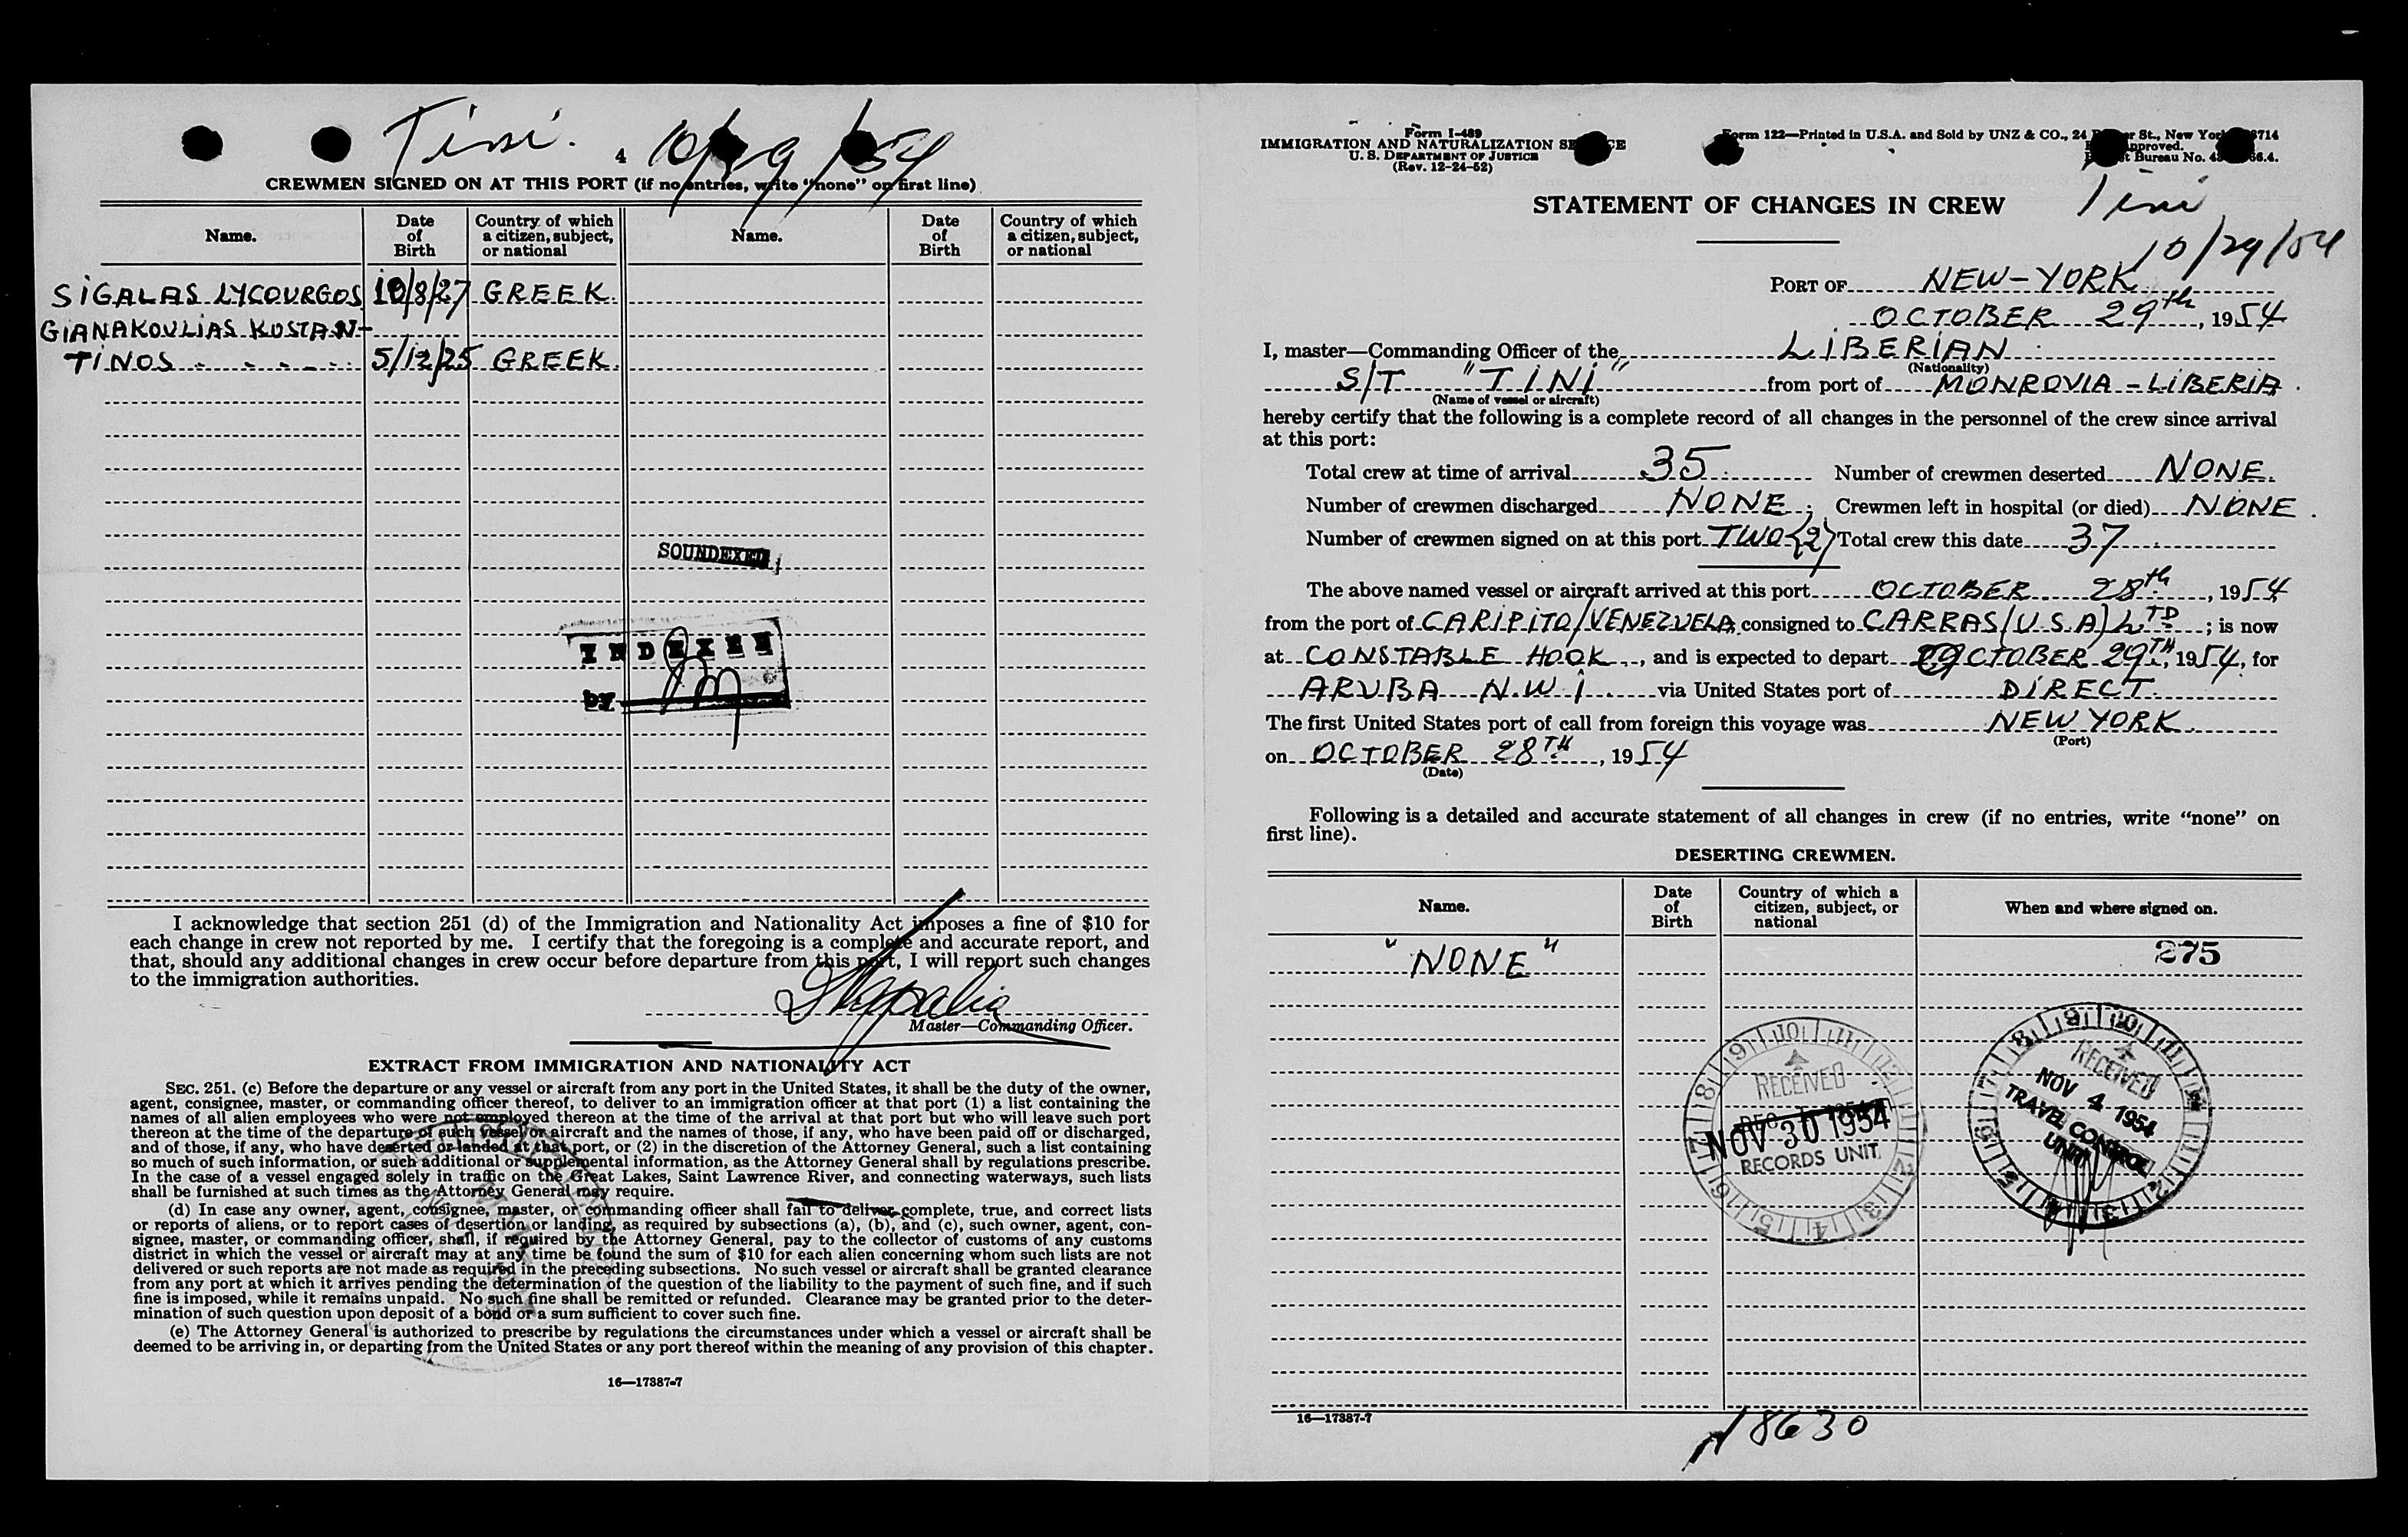 Tini. 4 10/29/54
CREWMEN SIGNED ON AT THIS PORT (if no entries, write "none" on first line)
Name. Date of Birth Country of which a citizen, subject, or national Name. Date of Birth Country of which a citizen, subject, or national
SIGALAS LYCOURGOS 10/8/27 GREEK.
GIANAKOULIAS KOSTAN-
TINOS 5/12/25 GREEK.
SOUNDEXED
INDEXED
by
I acknowledge that section 251 (d) of the Immigration and Nationality Act imposes a fine of $10 for
each change in crew not reported by me. I certify that the foregoing is a complete and accurate report, and
that, should any additional changes in crew occur before departure from this port, I will report such changes
to the immigration authorities.
Master—Commanding Officer.
EXTRACT FROM IMMIGRATION AND NATIONALITY ACT
SEC. 251. (c) Before the departure or any vessel or aircraft from any port in the United States, it shall be the duty of the owner,
agent, consignee, master, or commanding officer thereof, to deliver to an immigration officer at that port (1) a list containing the
names of all alien employees who were not employed thereon at the time of the arrival at that port but who will leave such port
thereon at the time of the departure of such vessel or aircraft and the names of those, if any, who have been paid off or discharged,
and of those, if any, who have deserted or landed at that port, or (2) in the discretion of the Attorney General, such a list containing
so much of such information, or such additional or supplemental information, as the Attorney General shall by regulations prescribe.
In the case of a vessel engaged solely in traffic on the Great Lakes, Saint Lawrence River, and connecting waterways, such lists
shall be furnished at such times as the Attorney General may require.
(d) In case any owner, agent, consignee, master, or commanding officer shall fail to deliver complete, true, and correct lists
or reports of aliens, or to report cases of desertion or landing, as required by subsections (a), (b), and (c), such owner, agent, con-
signee, master, or commanding officer, shall, if required by the Attorney General, pay to the collector of customs of any customs
district in which the vessel or aircraft may at any time be found the sum of $10 for each alien concerning whom such lists are not
delivered or such reports are not made as required in the preceding subsections. No such vessel or aircraft shall be granted clearance
from any port at which it arrives pending the determination of the question of the liability to the payment of such fine, and if such
fine is imposed, while it remains unpaid. No such fine shall be remitted or refunded. Clearance may be granted prior to the deter-
mination of such question upon deposit of a bond or a sum sufficient to cover such fine.
(e) The Attorney General is authorized to prescribe by regulations the circumstances under which a vessel or aircraft shall be
deemed to be arriving in, or departing from the United States or any port thereof within the meaning of any provision of this chapter.
16—17387-7
Form I-489
IMMIGRATION AND NATURALIZATION SERVICE
U. S. DEPARTMENT OF JUSTICE
(Rev. 12-24-52)
Form 122—Printed in U.S.A. and Sold by UNZ & CO., 24 St., New York
Approved.
Bureau No.
Tini
10/29/54
STATEMENT OF CHANGES IN CREW
PORT OF NEW-YORK
OCTOBER 29th, 1954
I, master—Commanding Officer of the LIBERIAN
(Nationality)
S/T "TINI" from port of MONROVIA - LIBERIA.
(Name of vessel or aircraft)
hereby certify that the following is a complete record of all changes in the personnel of the crew since arrival
at this port:
Total crew at time of arrival 35. Number of crewmen deserted NONE.
Number of crewmen discharged NONE; Crewmen left in hospital (or died) NONE.
Number of crewmen signed on at this port TWO (2) Total crew this date 37
The above named vessel or aircraft arrived at this port OCTOBER 28th, 1954
from the port of CARIPITO/VENEZUELA consigned to CARRAS (U.S.A) LTD; is now
at CONSTABLE HOOK, and is expected to depart OCTOBER 29TH, 1954, for
ARUBA N.W.I. via United States port of DIRECT.
The first United States port of call from foreign this voyage was NEW YORK.
(Port)
on OCTOBER 28TH, 1954
(Date)
Following is a detailed and accurate statement of all changes in crew (if no entries, write "none" on
first line).
DESERTING CREWMEN.
Name. Date of Birth Country of which a citizen, subject, or national When and where signed on.
"NONE" 275
RECEIVED
NOV 30 1954
RECORDS UNIT
RECEIVED
NOV 4 1954
TRAVEL CONTROL
UNIT
16—17387-7
18630